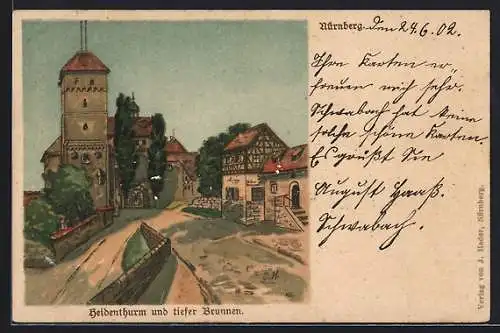 Nürnberg, den 24.6.02.
Ihre Karten er⸗
freuen mich sehr.
Schwabach hat keine
solche schöne Karten.
Es grüßt Sie
August Haas.
Schwabach.
Heidenthurm und tiefer Brunnen.
Verlag von J. Hader, Nürnberg.